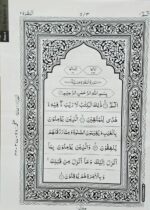 بِسْمِ اللهِ الرَّحْمٰنِ الرَّحِيْمِ
الٓمّٓ ۚ ذٰلِكَ الْكِتٰبُ لَا رَيْبَ ۛ فِيْهِ ۛ
هُدًى لِّلْمُتَّقِيْنَ ۙ الَّذِيْنَ يُؤْمِنُوْنَ
بِالْغَيْبِ وَيُقِيْمُوْنَ الصَّلٰوةَ وَمِمَّا رَزَقْنٰهُمْ
يُنْفِقُوْنَ ۙ وَالَّذِيْنَ يُؤْمِنُوْنَ بِمَا
اُنْزِلَ اِلَيْكَ وَمَا اُنْزِلَ مِنْ قَبْلِكَ ۚ
وَبِالْاٰخِرَةِ هُمْ يُوْقِنُوْنَ